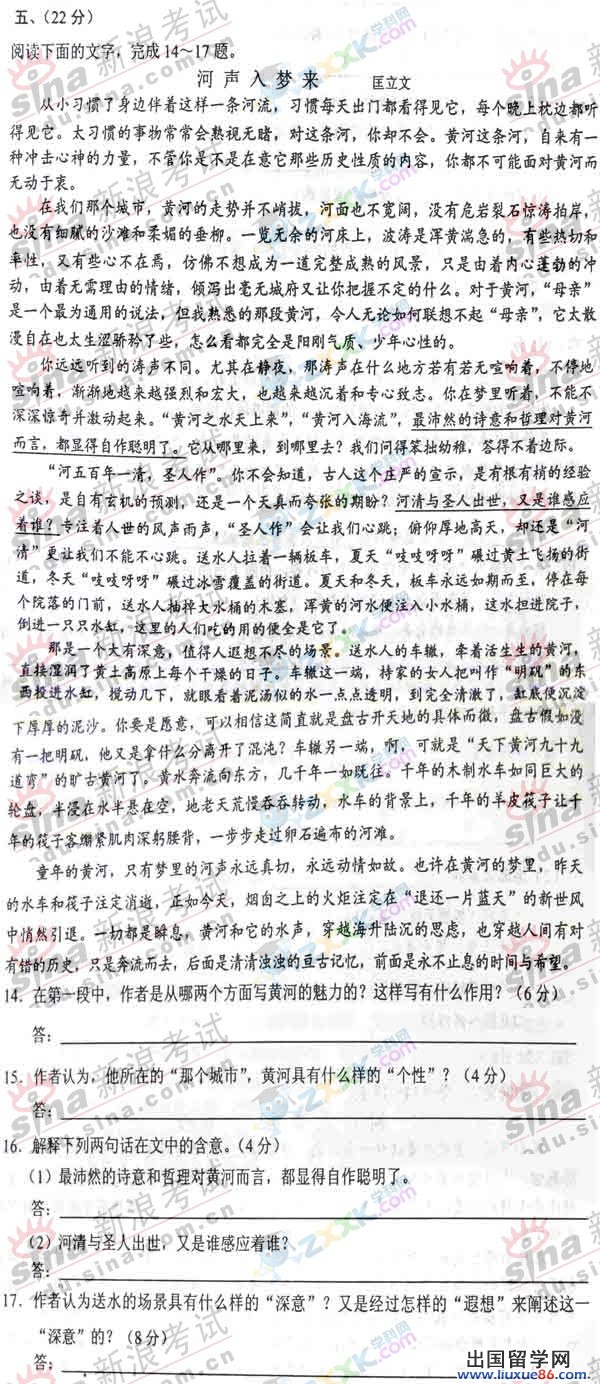 五、（22分）
阅读下面的文字，完成14～17题。
河 声 入 梦 来 匡立文
从小习惯了身边伴着这样一条河流，习惯每天出门都看得见它，每个晚上枕边都听
得见它。太习惯的事物常常会熟视无睹，对这条河，你却不会。黄河这条河，自来有一
种冲击心神的力量，不管你是不是在意它那些历史性质的内容，你都不可能面对黄河而
无动于衷。
在我们那个城市，黄河的走势并不峭拔，河面也不宽阔，没有危岩裂石惊涛拍岸，
也没有细腻的沙滩和柔媚的垂柳。一览无余的河床上，波涛是浑黄湍急的，有些热切和
率性，又有些心不在焉，仿佛不想成为一道完整成熟的风景，只是由着内心蓬勃的冲
动，由着无需理由的情绪，倾泻出毫无城府又让你把握不定的什么。对于黄河，“母亲”
是一个最为通用的说法，但我熟悉的那段黄河，令人无论如何联想不起“母亲”，它太散
漫自在也太生涩骄矜了些，怎么看都完全是阳刚气质、少年心性的。
你远远听到的涛声不同。尤其在静夜，那涛声在什么地方若有若无喧响着，不停地
喧响着，渐渐地越来越强烈和宏大，也越来越沉着和专心致志。你在梦里听着，不能不
深深惊奇并激动起来。“黄河之水天上来”，“黄河入海流”，最沛然的诗意和哲理对黄河
而言，都显得自作聪明了。它从哪里来，到哪里去？我们问得笨拙幼稚，答得不着边际。
“河五百年一清，圣人作”。你不会知道，古人这个庄严的宣示，是有根有梢的经验
之谈，是自有玄机的预测，还是一个天真而夸张的期盼？河清与圣人出世，又是谁感应
着谁？专注着人世的风声雨声，“圣人作”会让我们心跳；俯仰厚地高天，却还是“河
清”更让我们不能不心跳。送水人拉着一辆板车，夏天“吱吱呀呀”碾过黄土飞扬的街
道，冬天“吱吱呀呀”碾过冰雪覆盖的街道。夏天和冬天，板车永远如期而至，停在每
个院落的门前，送水人抽掉大水桶的木塞，浑黄的河水便注入小水桶，这水担进院子，
倒进一只只水缸，这里的人们吃的用的便全是它了。
那是一个大有深意，值得人遐想不尽的场景。送水人的车辙，牵着活生生的黄河，
直接湿润了黄土高原上每个干燥的日子。车辙这一端，持家的女人把叫作“明矾”的东
西投进水缸，搅动几下，就眼看着泥汤似的水一点点透明，到完全清澈了，缸底便沉淀
下厚厚的泥沙。你要是愿意，可以相信这简直就是盘古开天地的具体而微，盘古假如没
有一把明矾，他又是拿什么分离开了混沌？车辙另一端，啊，可就是“天下黄河九十九
道弯”的旷古黄河了。黄水奔流向东方，几千年一如既往。千年的木制水车如同巨大的
轮盘，半浸在水半悬在空，地老天荒慢吞吞转动，水车的背景上，千年的羊皮筏子让千
年的筏子客绷紧肌肉深躬腰背，一步步走过卵石遍布的河滩。
童年的黄河，只有梦里的河声永远真切，永远动情如故。也许在黄河的梦里，昨天
的水车和筏子注定消逝，正如今天，烟囱之上的火炬注定在“退还一片蓝天”的新世风
中悄然引退。一切都是瞬息，黄河和它的水声，穿越海升陆沉的思虑，也穿越人间有对
有错的历史，只是奔流而去，后面是清清浊浊的亘古记忆，前面是永不止息的时间与希望。
14．在第一段中，作者是从哪两个方面写黄河的魅力的？这样写有什么作用？（6分）
答：
15．作者认为，他所在的“那个城市”，黄河具有什么样的“个性”？（4分）
答：
16．解释下列两句话在文中的含意。（4分）
（1）最沛然的诗意和哲理对黄河而言，都显得自作聪明了。
答：
（2）河清与圣人出世，又是谁感应着谁？
答：
17．作者认为送水的场景具有什么样的“深意”？又是经过怎样的“遐想”来阐述这一
“深意”的？（8分）
答：
出国留学网
www.liuxue86.com